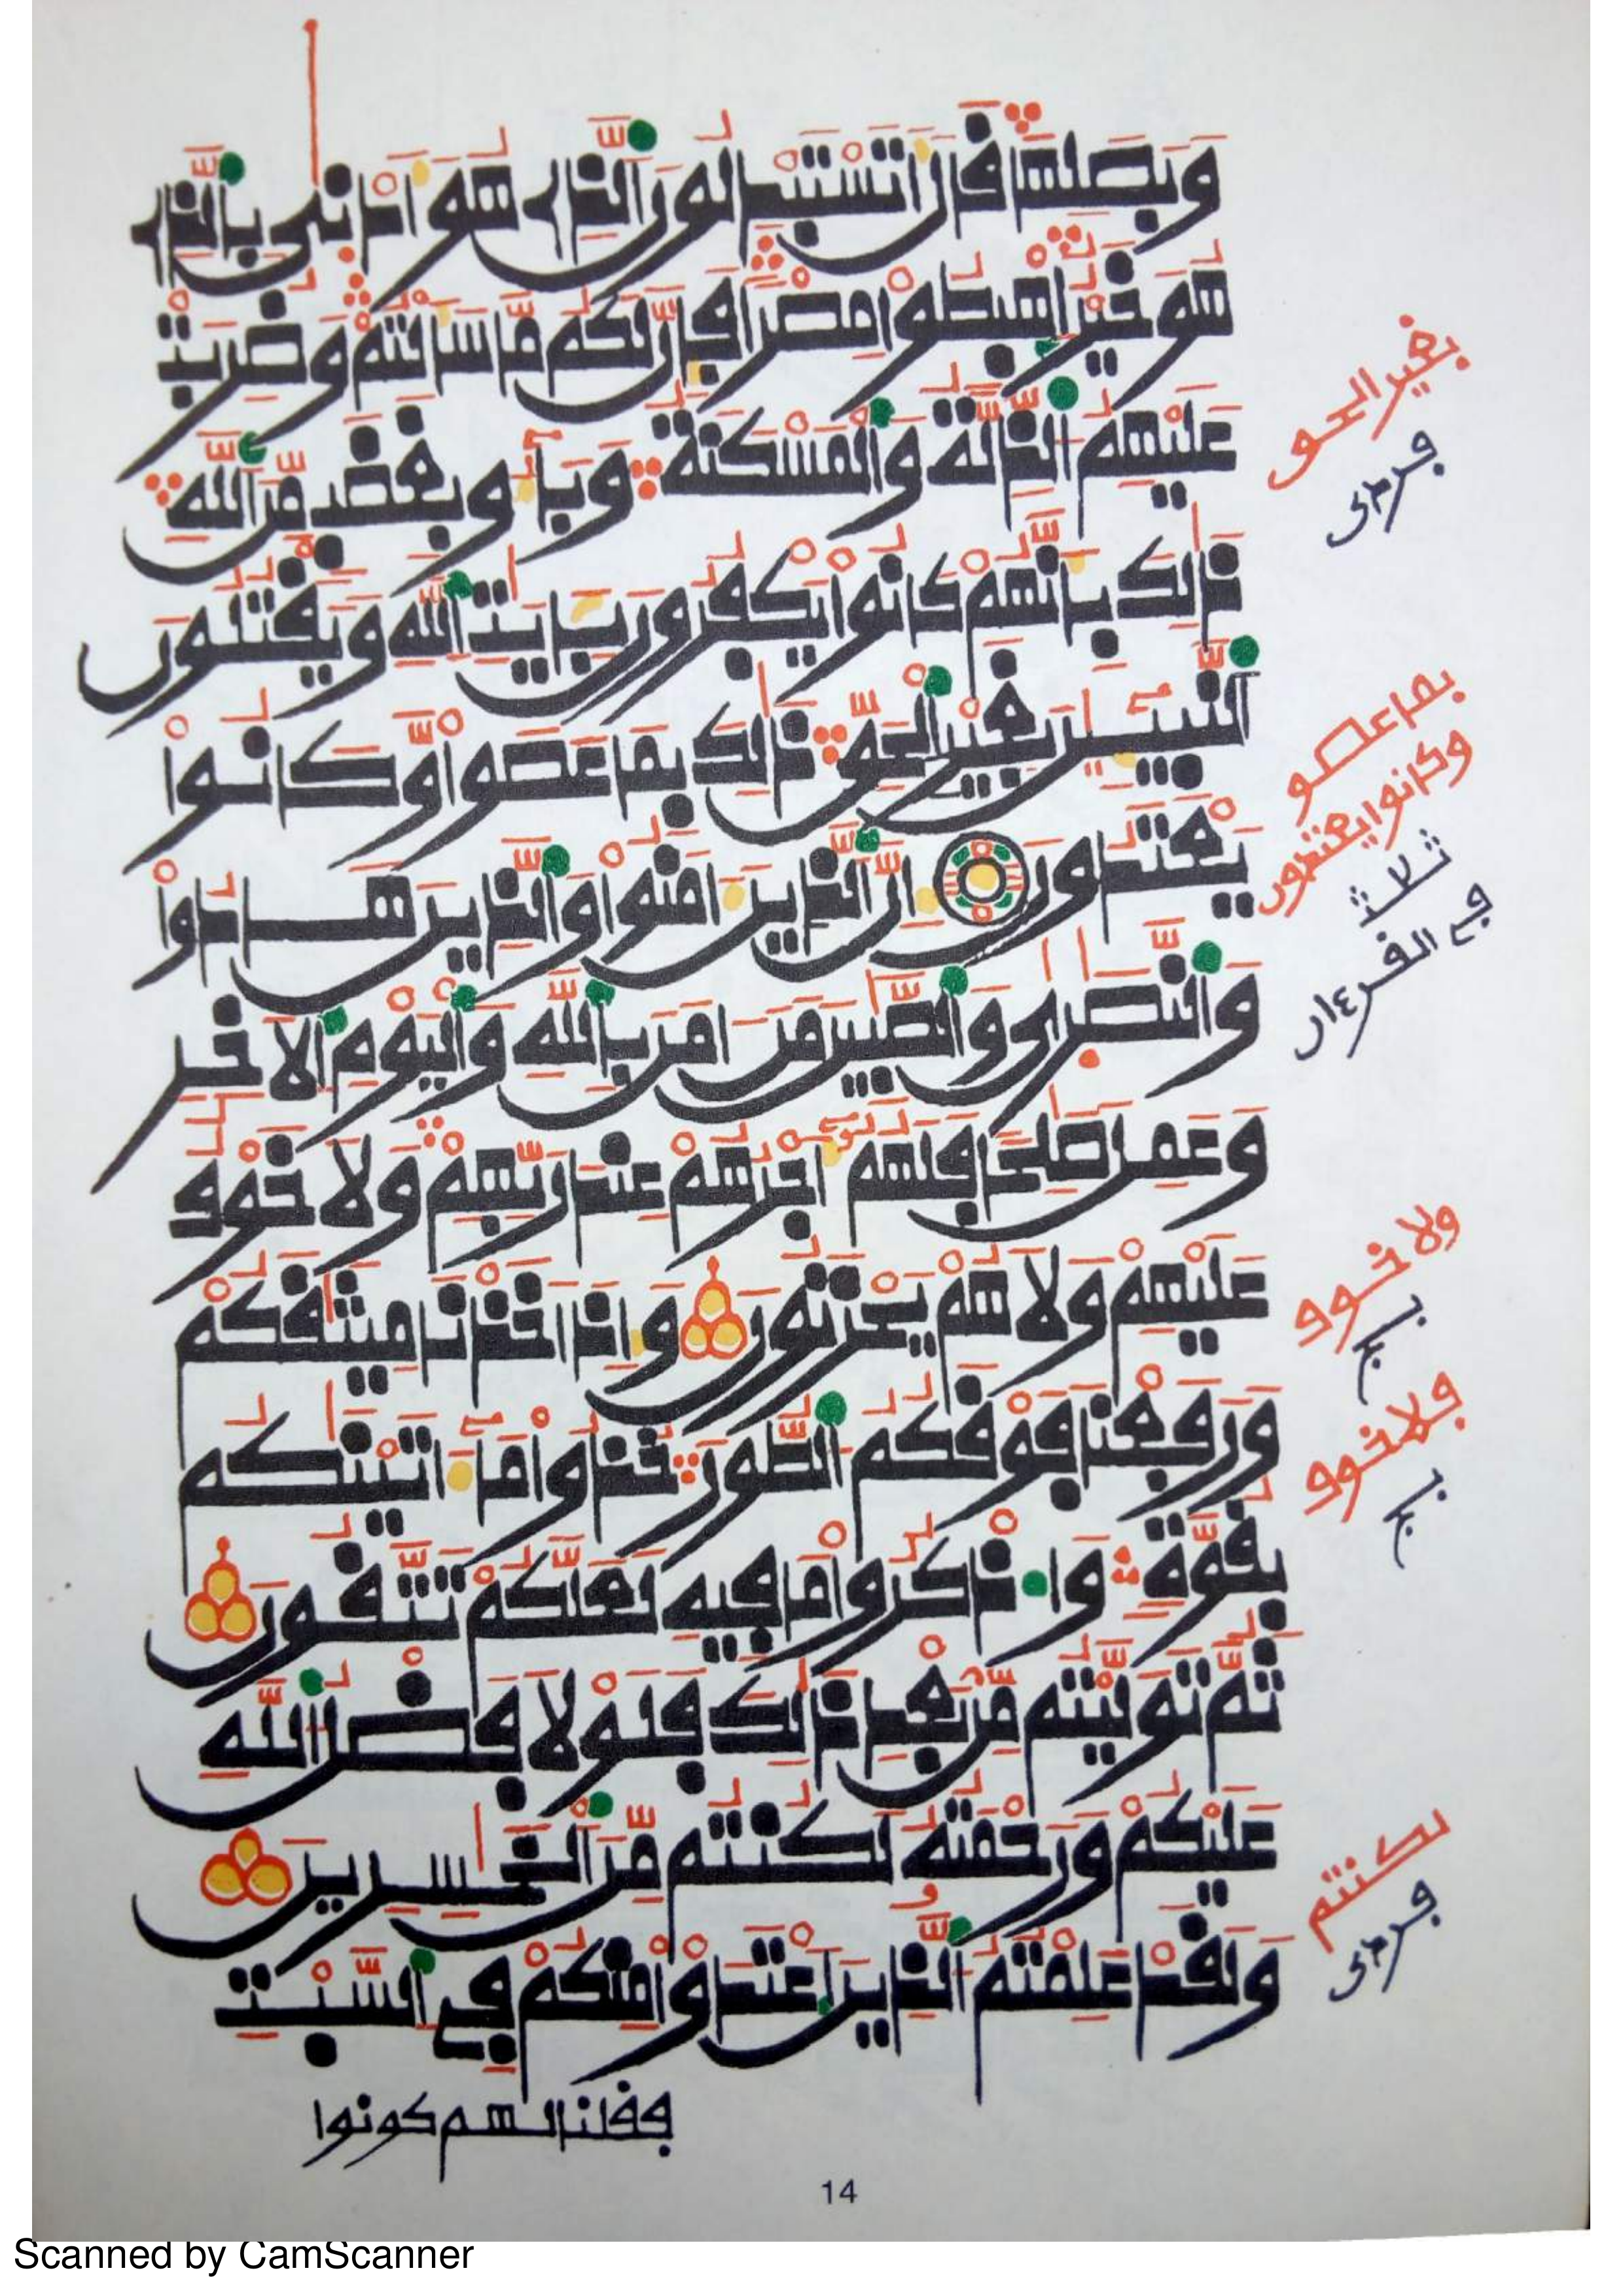 وَبَصَلِهَا قَالَ أَتَسْتَبْدِلُونَ ٱلذِے هُوَ أَدْنۭىٰ بِالذِے
هُوَ خَيْرٌ ٱهْبِطُواْ مِصْراً فَإِنَّ لَكُم مَّا سَأَلْتُمْ وَضُرِبَتْ
عَلَيْهِمُ ٱلذِّلَّةُ وَالْمَسْكَنَةُ وَبَآءُو بِغَضَبٍ مِّنَ ٱللَّهِ
ذَٰلِكَ بِأَنَّهُمْ كَانُواْ يَكْفُرُونَ بِـَٔايَٰتِ ٱللَّهِ وَيَقْتُلُونَ
ٱلنَّبِيٓـِٕينَ بِغَيْرِ ٱلْحَقِّ ذَٰلِكَ بِمَا عَصَواْ وَّكَانُواْ
يَعْتَدُونَ إِنَّ ٱلذِينَ ءَامَنُواْ وَالذِينَ هَادُواْ
وَالنَّصَٰرَىٰ وَالصَّٰبِينَ مَنَ ـامَنَ بِاللَّهِ وَالْيَوْمِ ٱلَاخِرِ
وَعَمِلَ صَٰلِحاً فَلَهُمُۥٓ أَجْرُهُمْ عِندَ رَبِّهِمْ وَلَا خَوْفٌ
عَلَيْهِمْ وَلَا هُمْ يَحْزَنُونَ وَإِذَ اَخَذْنَا مِيثَٰقَكُمْ
وَرَفَعْنَا فَوْقَكُمُ ٱلطُّورَ خُذُواْ مَآ ءَاتَيْنَٰكُم
بِقُوَّةٍ وَاذْكُرُواْ مَا فِيهِ لَعَلَّكُمْ تَتَّقُونَ
ثُمَّ تَوَلَّيْتُم مِّنۢ بَعْدِ ذَٰلِكَ فَلَوْلَا فَضْلُ ٱللَّهِ
عَلَيْكُمْ وَرَحْمَتُهُۥ لَكُنتُم مِّنَ ٱلْخَٰسِرِينَ
وَلَقَدْ عَلِمْتُمُ ٱلذِينَ ٱعْتَدَوْاْ مِنكُمْ فِے ٱلسَّبْتِ
فقلنا لهم كونوا
بغير الحق
بما عصو
وكانوا يعتدون
ثلاث
في القرءان
ولا خوف
فلا خوف
لكنتم
14
Scanned by CamScanner